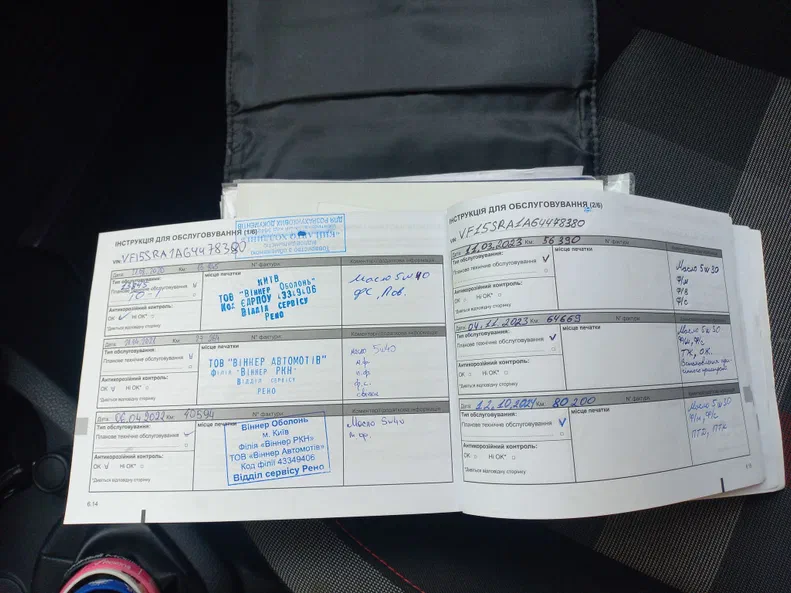 ІНСТРУКЦІЯ ДЛЯ ОБСЛУГОВУВАННЯ (1/6)
VIN VF15SRA1AG4478380
Дата Км № фактури Коментарі/додаткова інформація
Тип обслуговування:
Планове технічне обслуговування
місце печатки
КИЇВ
ТОВ "Віннер Оболонь"
Код ЄДРПОУ 43349406
Відділ сервісу
Рено
Масло 5w40
Антикорозійний контроль:
ОК Ні ОК*
*Дивіться відповідну сторінку
Дата Км № фактури Коментарі/додаткова інформація
Тип обслуговування:
Планове технічне обслуговування
місце печатки
ТОВ "ВІННЕР АВТОМОТІВ"
Філія "Віннер РКН"
Відділ сервісу
РЕНО
5w40
Антикорозійний контроль:
ОК Ні ОК*
*Дивіться відповідну сторінку
Дата 06.04.2022 Км 40594 № фактури Коментарі/додаткова інформація
Тип обслуговування:
Планове технічне обслуговування
місце печатки
Віннер Оболонь
м. Київ
Філія «Віннер РКН»
ТОВ «Віннер Автомотів»
Код філії 43349406
Відділ сервісу Рено
Масло 5w40
Антикорозійний контроль:
ОК Ні ОК*
*Дивіться відповідну сторінку
6.14
ІНСТРУКЦІЯ ДЛЯ ОБСЛУГОВУВАННЯ (2/6)
VIN VF15SRA1AG4478380
Дата 11.03.2023 Км 56390 № фактури
Тип обслуговування:
Планове технічне обслуговування
місце печатки
Масло 5w30
Ф/м
Ф/в
Ф/с
Антикорозійний контроль:
ОК Ні ОК*
*Дивіться відповідну сторінку
Дата 04.11.2023 Км 64669 № фактури
Тип обслуговування:
Планове технічне обслуговування
місце печатки
Масло 5w30
Ф/м, Ф/с
Антикорозійний контроль:
ОК Ні ОК*
*Дивіться відповідну сторінку
Дата 12.10.2024 Км 80200 № фактури
Тип обслуговування:
Планове технічне обслуговування
місце печатки
Масло 5w30
Антикорозійний контроль:
ОК Ні ОК*
*Дивіться відповідну сторінку